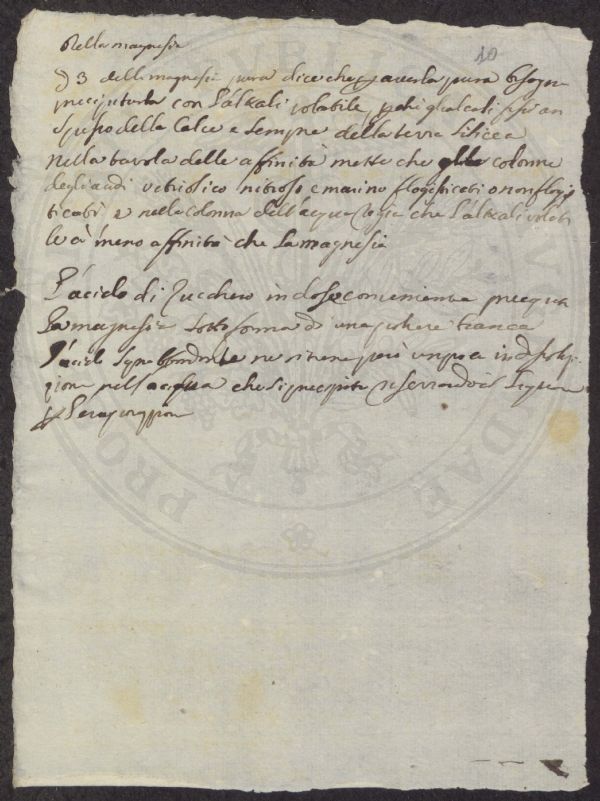 Della magnesia
10
§ 3 della magnesia pura dice che p averla pura bisogna
precipitarla con l'alkali volatile, perche gli alcali fissi an
spesso della Calce e sempre della terra Silicea
nella tavola delle affinità mette che colonne
degli acidi vetriolico nitroso e marino flogisticati o non flogis
ticati e nella colonna dell'acqua Regia che l'alkali volati
le à meno affinità che la magnesia
L'acido di Zucchero in dose conveniente precipita
la magnesia sotto forma di una polvere bianca
L'acido ne ritiene però un poco in dissolu
zione nell'acqua che si precipita
l'evaporazione
PRO